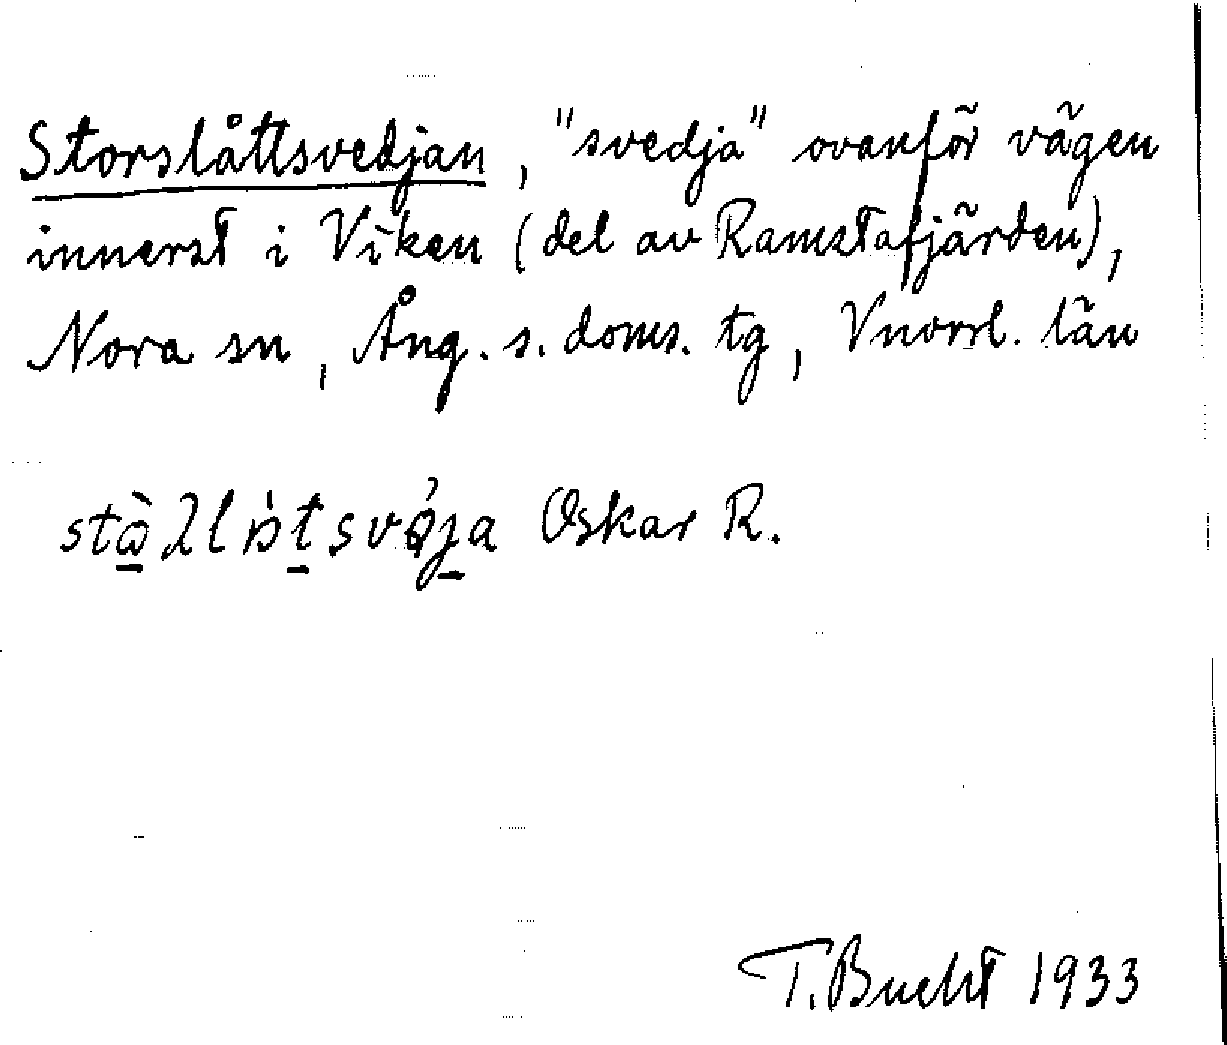 Storslåttsvedjan, "svedja" ovanför vägen
innerst i Viken (del av Ramstafjärden),
Nora sn, Ång. s. doms. tg, Vnorrl. län
Oskar R.
T. Bucht 1933